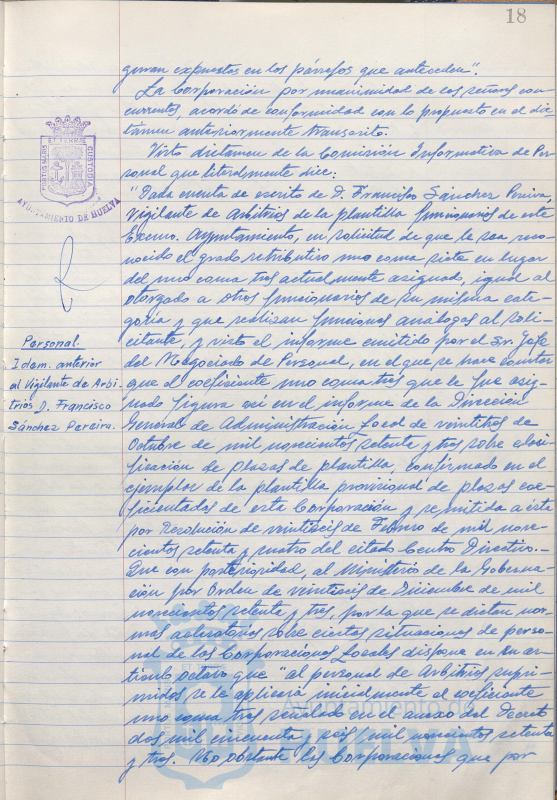 18
guran expuestos en los párrafos que anteceden".
La Corporación por unanimidad de los señores con-
currentes, acordó de conformidad con lo propuesto en el dic-
támen anteriormente transcrito.
Visto dictamen de la Comisión Informativa de Per-
sonal que literalmente dice:
"Dada cuenta de escrito de D. Francisco Sánchez Pereira,
Vigilante de Arbitrios de la plantilla funcionarios de este
Excmo. Ayuntamiento, en solicitud de que le sea reco-
nocido el grado retributivo uno coma siete en lugar
del uno coma tres actualmente asignado, igual al
otorgado a otros funcionarios de su misma cate-
goría y que realizan funciones análogas al soli-
citante, y visto el informe emitido por el Sr. Jefe
del Negociado de Personal, en el que se hace constar
que el coeficiente uno coma tres que le fue asig-
nado figura así en el informe de la Dirección
General de Administración Local de veintitrés de
Octubre de mil novecientos setenta y tres sobre clasi-
ficación de plazas de plantilla, confirmado en el
ejemplar de la plantilla provisional de plazas coe-
ficientadas de esta Corporación y remitida a ésta
por Resolución de veintiseis de Febrero de mil nove-
cientos setenta y cuatro del citado Centro Directivo.-
Que con posterioridad, el Ministerio de la Goberna-
ción por Orden de veintiseis de Diciembre de mil
novecientos setenta y tres, por la que se dictan nor-
mas aclaratorias sobre ciertas situaciones de perso-
nal de las Corporaciones Locales dispone en su ar-
tículo octavo que "al personal de Arbitrios supri-
midos se le aplicará inicialmente el coeficiente
uno coma tres señalado en el anexo del Decreto
dos mil cincuenta y seis/mil novecientos setenta
y tres. No obstante las Corporaciones que por
PORTUS MARIS ET TERRAE CUSTODIA
AYUNTAMIENTO DE HUELVA
Personal.
Idem. anterior
al Vigilante de Arbi-
trios D. Francisco
Sánchez Pereira.
Ayuntamiento de
HUELVA